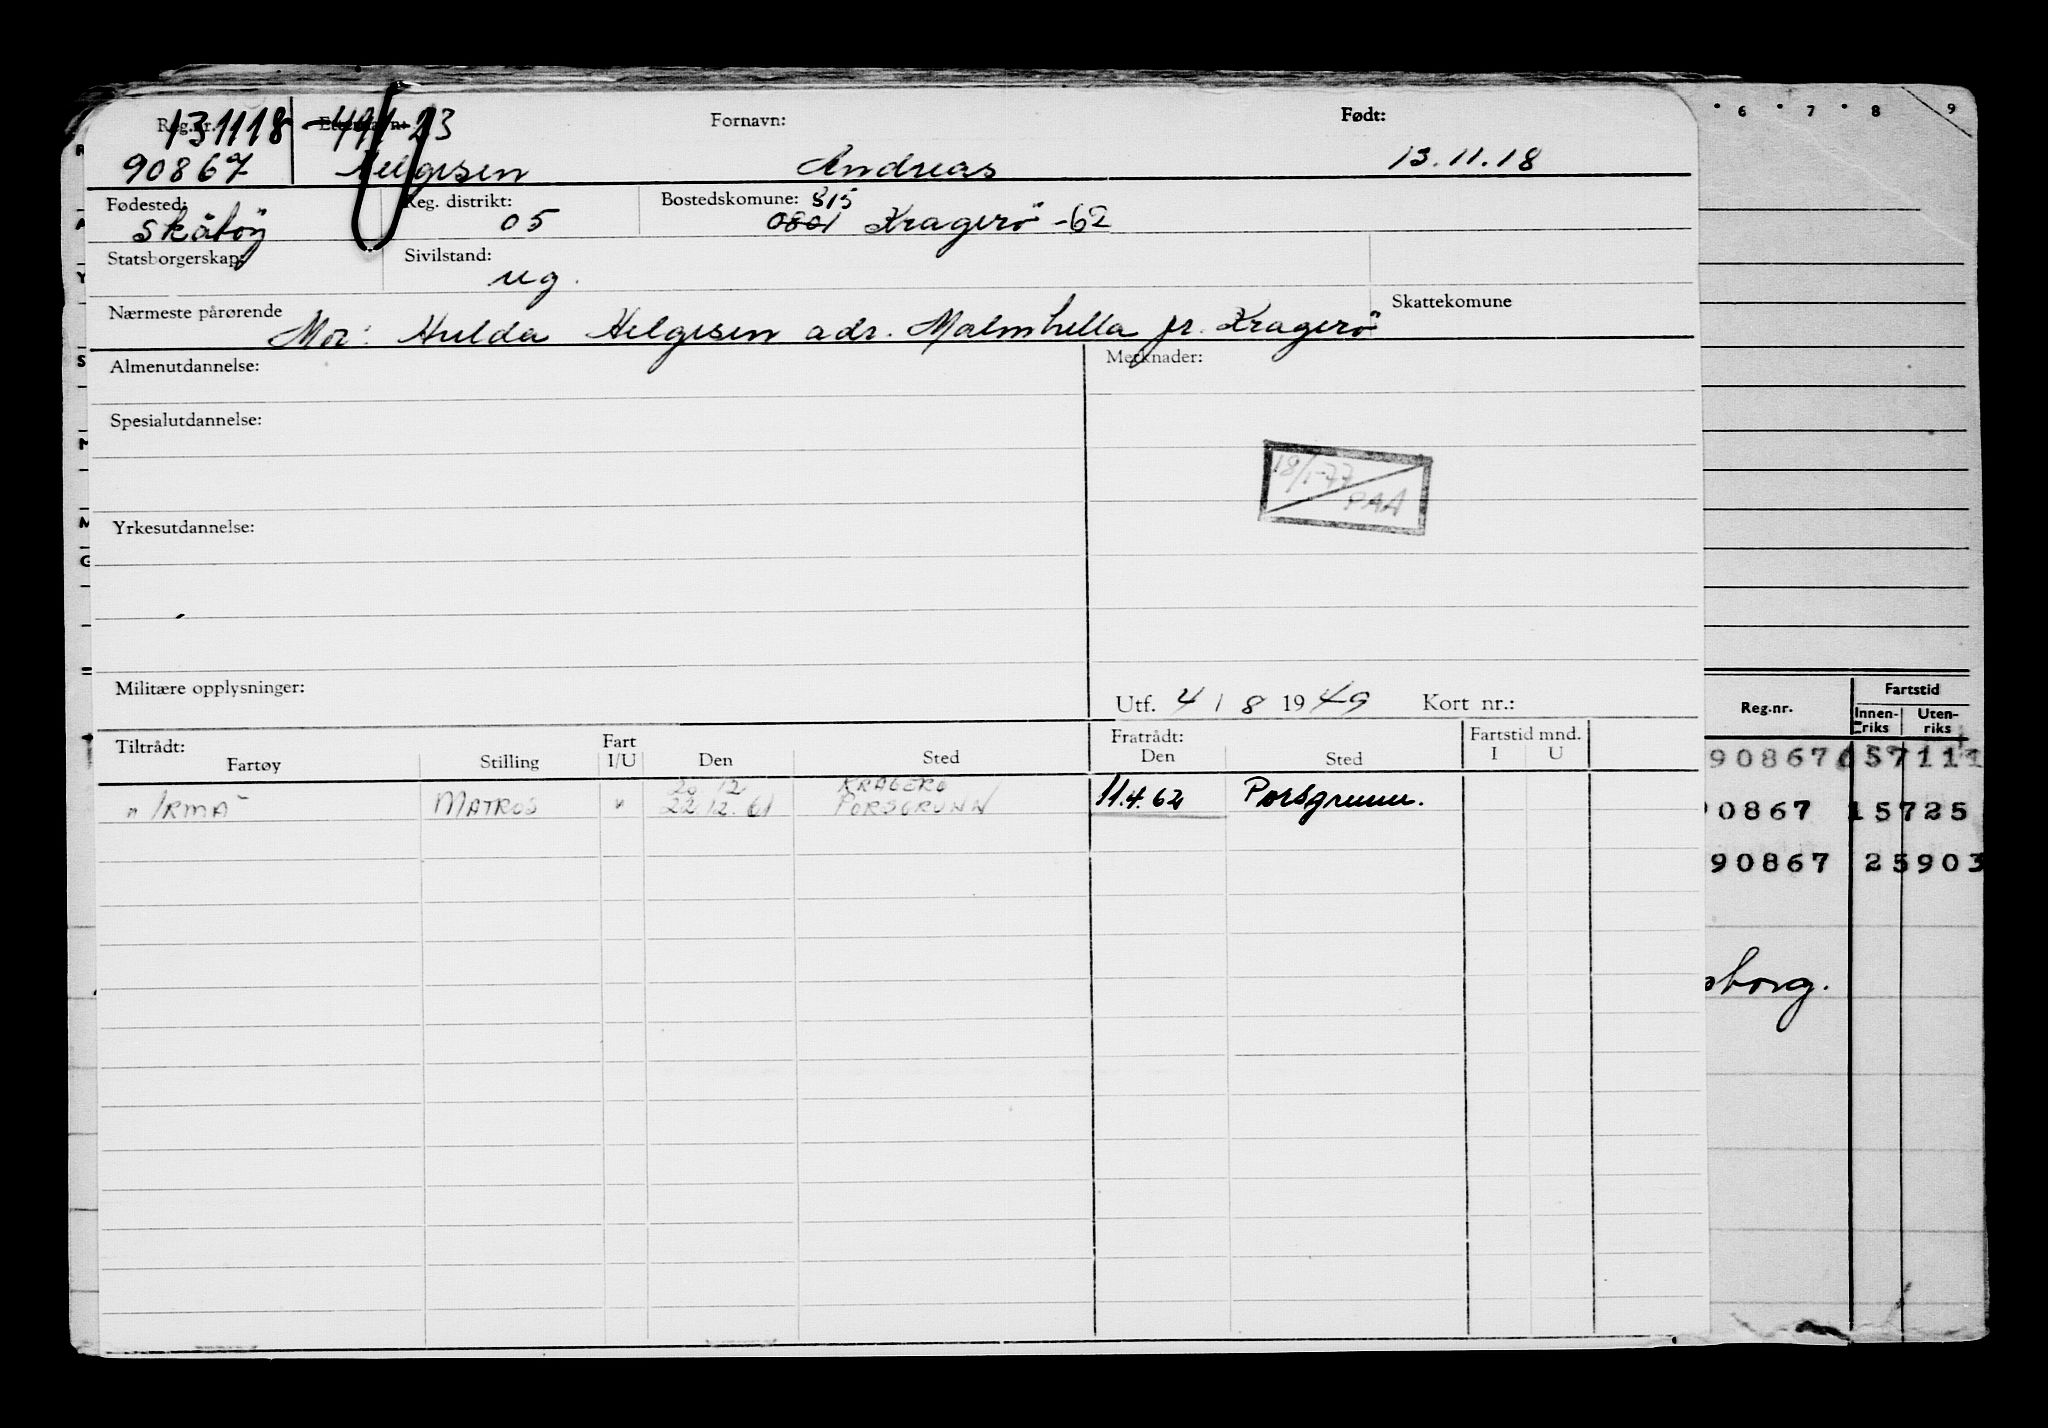 6 7 8 9
Reg.nr. Etternavn: Fornavn: Født:
131118 491 23
90867 Helgesen Andreas 13.11.18
Fødested: Reg. distrikt: Bostedskomune: 815
Skåtøy 05 0801 Kragerö -62
Statsborgerskap: Sivilstand:
ug.
Nærmeste pårørende Skattekomune
Mor: Hulda Helgesen adr. Malmhella pr. Kragerö
Almenutdannelse: Merknader:
Spesialutdannelse:
18/1-77
PAA
Yrkesutdannelse:
Militære opplysninger: Utf. 4 / 8 1949 Kort nr.:
Tiltrådt: Fratrådt: Fartstid mnd.
Fartøy Stilling Fart I/U Den Sted Den Sted I U
20 12 KRAGERØ
"IRMA" MATROS " 22 12. 61 PORSGRUNN 11.4.62 Porsgrunn.
Reg.nr. Fartstid
Innenriks Utenriks
90867 157111
0867 15725
90867 25903
sborg.